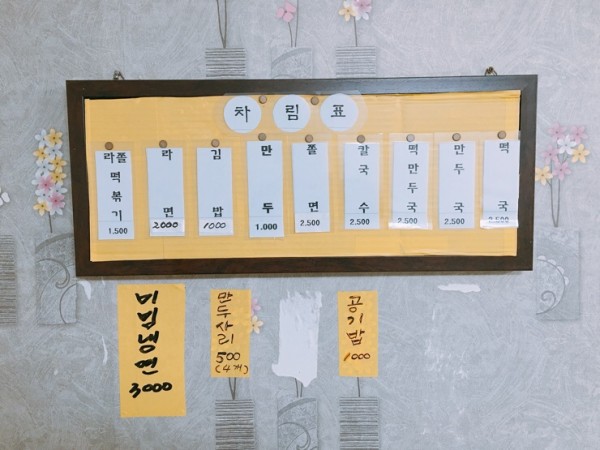 차림표
라쫄떡볶기 1,500
라면 2000
김밥 1000
만두 1.000
쫄면 2.500
칼국수 2.500
떡만두국 2.500
만두국 2.500
떡국 2.500
미밈냉면 3000
만두사리 500 (4개)
공기밥 1000